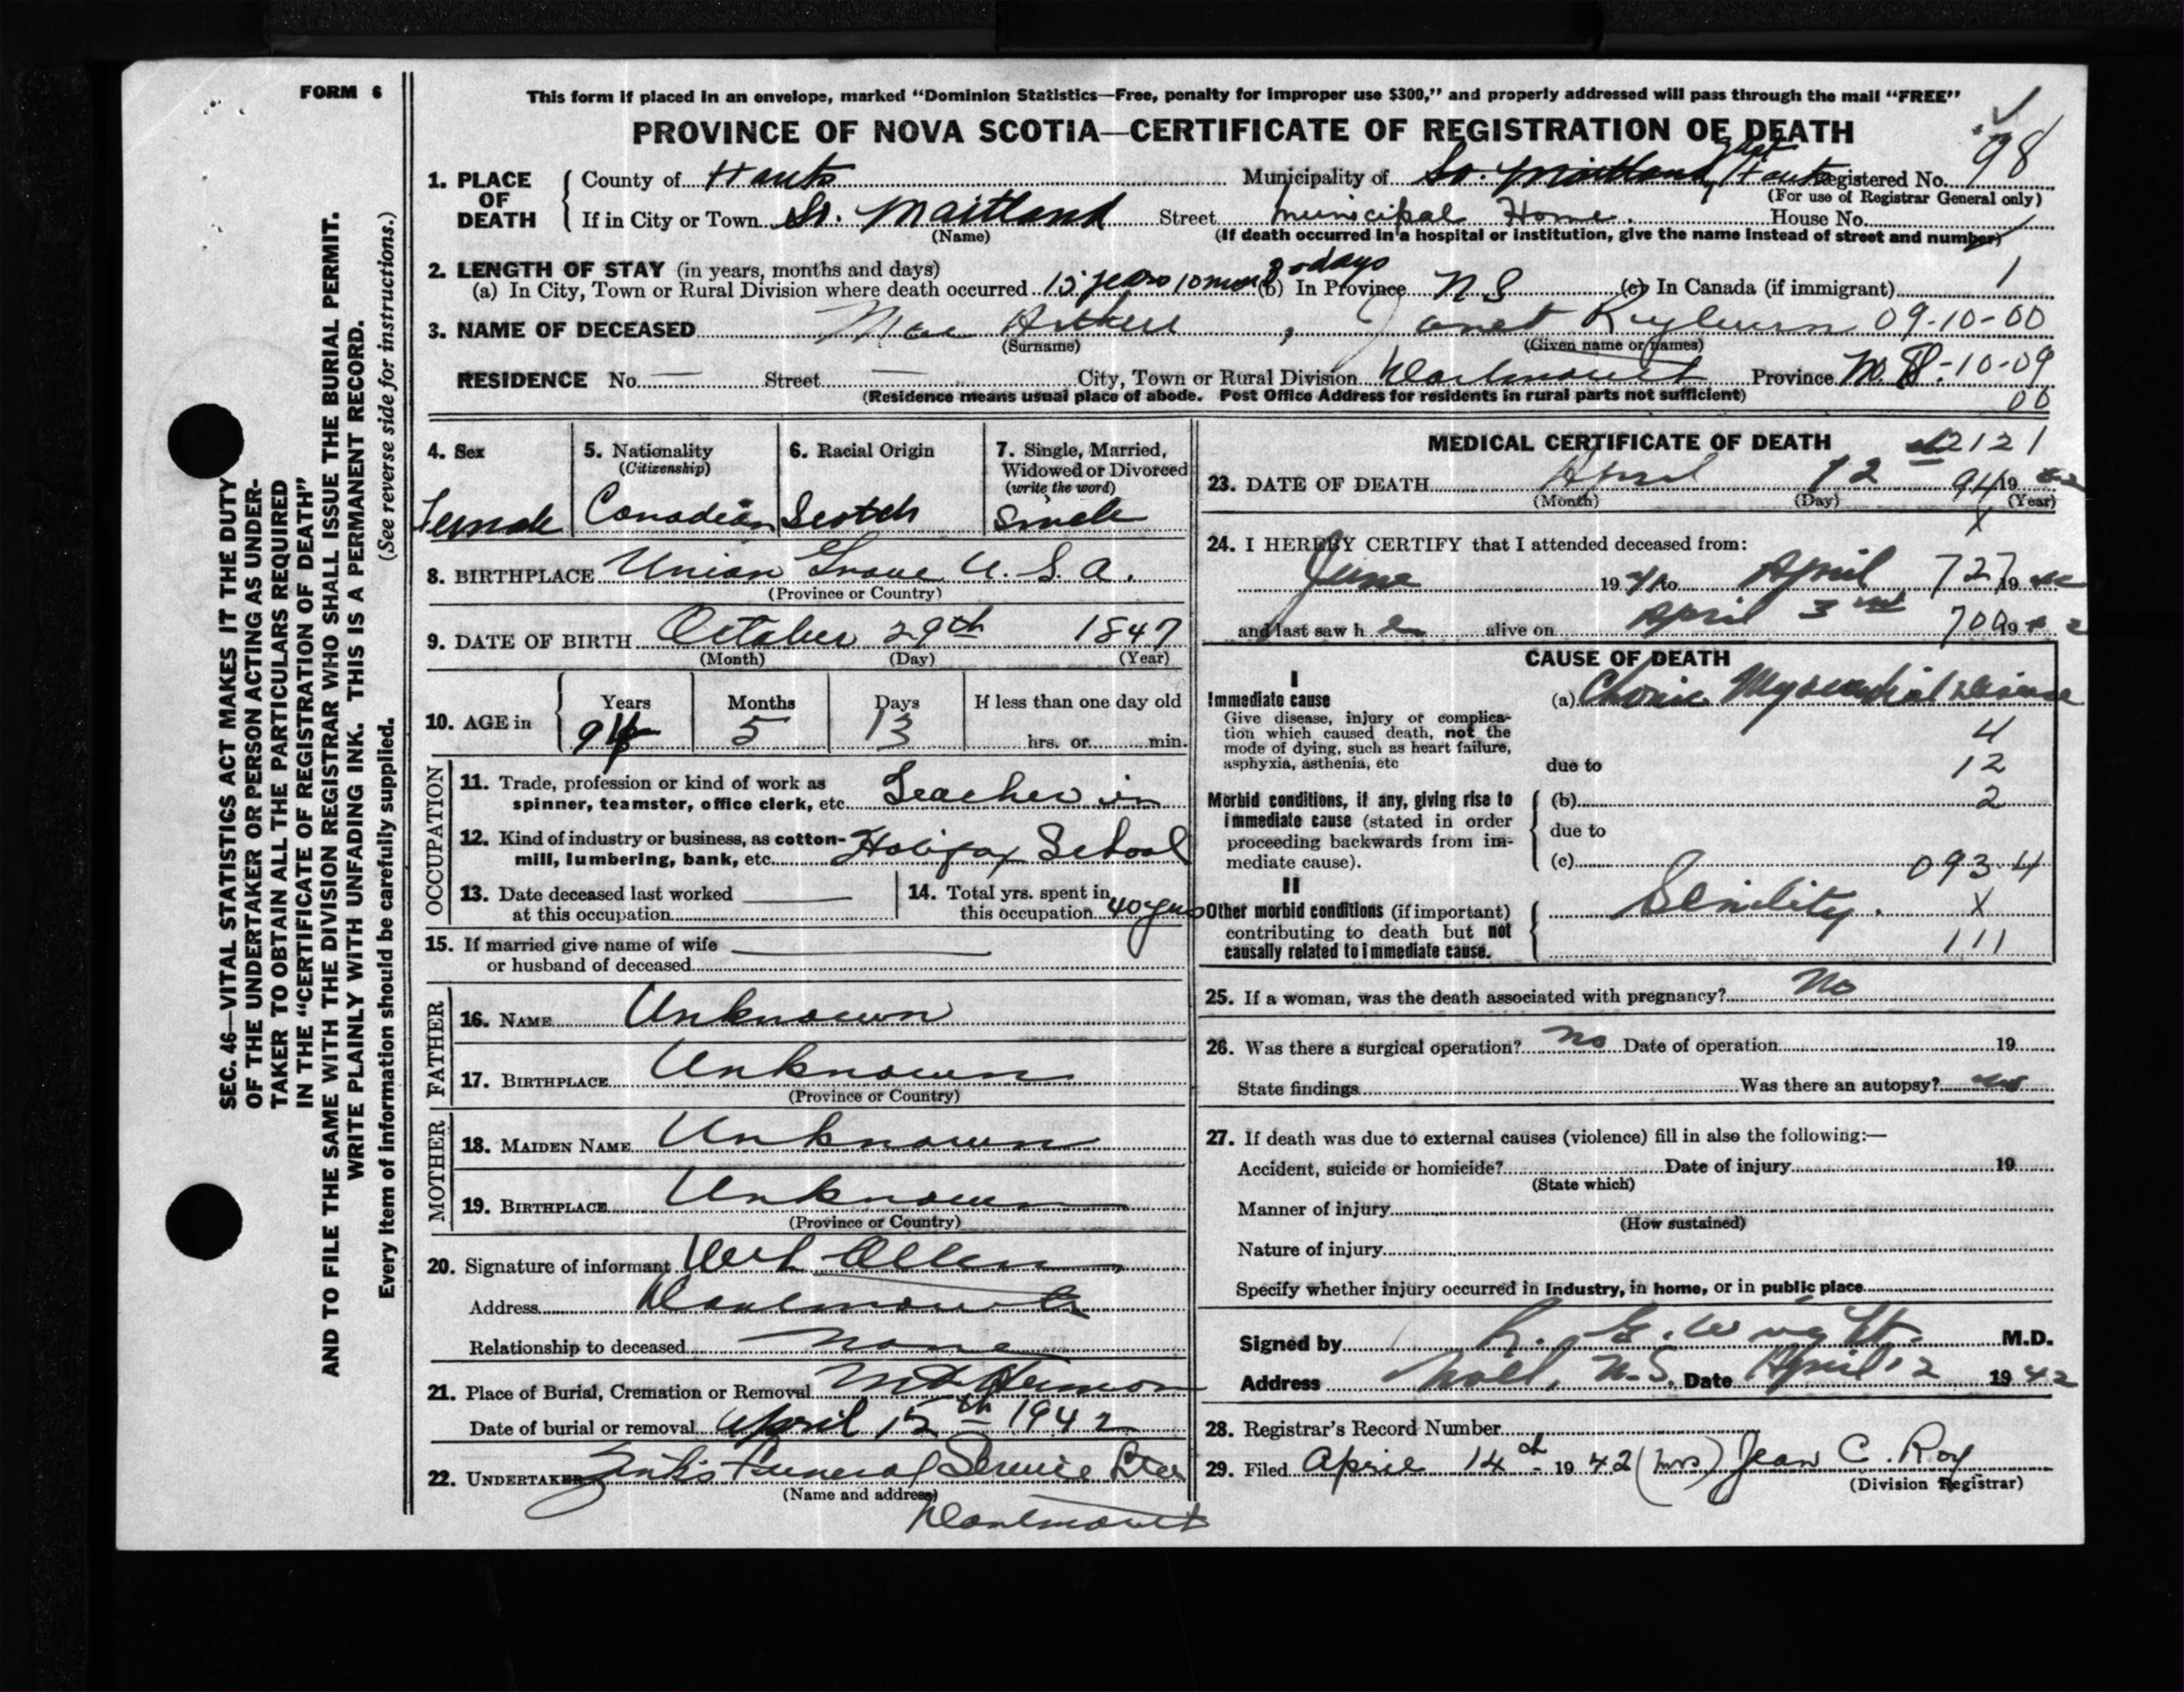 FORM 6
This form if placed in an envelope, marked “Dominion Statistics—Free, penalty for improper use $300,” and properly addressed will pass through the mail “FREE”
PROVINCE OF NOVA SCOTIA—CERTIFICATE OF REGISTRATION OF DEATH
1. PLACE OF DEATH
County of Hants Municipality of So. Maitland East Hants Registered No. 98
(For use of Registrar General only)
If in City or Town So. Maitland Street Municipal Home. House No.
(Name) (If death occurred in a hospital or institution, give the name instead of street and number)
2. LENGTH OF STAY (in years, months and days)
(a) In City, Town or Rural Division where death occurred 15 years 10 mon days (b) In Province N S (c) In Canada (if immigrant) 1
3. NAME OF DECEASED Mac Arthur , Janet 09-10-00
(Surname) (Given name or names)
RESIDENCE No. — Street — City, Town or Rural Division Dartmouth Province N. S. -10-09
00
(Residence means usual place of abode. Post Office Address for residents in rural parts not sufficient)
4. Sex Female
5. Nationality (Citizenship) Canadian
6. Racial Origin Scotch
7. Single, Married, Widowed or Divorced (write the word) Single
8. BIRTHPLACE Union Grove U. S. A.
(Province or Country)
9. DATE OF BIRTH October 29th 1847
(Month) (Day) (Year)
10. AGE in Years 94 Months 5 Days 13 If less than one day old
hrs. or min.
OCCUPATION
11. Trade, profession or kind of work as spinner, teamster, office clerk, etc. Teacher in
12. Kind of industry or business, as cotton-mill, lumbering, bank, etc. Halifax School
13. Date deceased last worked at this occupation
14. Total yrs. spent in this occupation 40 yrs
15. If married give name of wife or husband of deceased
FATHER
16. NAME Unknown
17. BIRTHPLACE Unknown
(Province or Country)
MOTHER
18. MAIDEN NAME Unknown
19. BIRTHPLACE Unknown
(Province or Country)
20. Signature of informant Allen
Address Dartmouth
Relationship to deceased none
21. Place of Burial, Cremation or Removal Mt Hermon
Date of burial or removal April 15th 1942
22. UNDERTAKER Zink's Funeral Service Ltd
(Name and address)
Dartmouth
MEDICAL CERTIFICATE OF DEATH 2121
23. DATE OF DEATH April 12 94 19 42
(Month) (Day) (Year)
X
24. I HEREBY CERTIFY that I attended deceased from:
June 19 41 to April 727 19 42
and last saw h er alive on April 3rd 709 19 42
CAUSE OF DEATH
I
Immediate cause
Give disease, injury or complication which caused death, not the mode of dying, such as heart failure, asphyxia, asthenia, etc
(a) Chronic Myocardial Disease
4
due to 12
Morbid conditions, if any, giving rise to immediate cause (stated in order proceeding backwards from immediate cause).
(b) 2
due to
(c) 093.4
II
Other morbid conditions (if important) contributing to death but not causally related to immediate cause.
Senility. X
111
25. If a woman, was the death associated with pregnancy? No
26. Was there a surgical operation? No Date of operation 19
State findings Was there an autopsy? no
27. If death was due to external causes (violence) fill in also the following:—
Accident, suicide or homicide? Date of injury 19
(State which)
Manner of injury
(How sustained)
Nature of injury
Specify whether injury occurred in industry, in home, or in public place
Signed by R. E. Wright. M.D.
Address Noel, N.S. Date April 12 19 42
28. Registrar's Record Number
29. Filed April 14th 19 42 (Mrs) Jean C. Roy
(Division Registrar)
SEC. 46—VITAL STATISTICS ACT MAKES IT THE DUTY
OF THE UNDERTAKER OR PERSON ACTING AS UNDER-
TAKER TO OBTAIN ALL THE PARTICULARS REQUIRED
IN THE “CERTIFICATE OF REGISTRATION OF DEATH”
AND TO FILE THE SAME WITH THE DIVISION REGISTRAR WHO SHALL ISSUE THE BURIAL PERMIT.
WRITE PLAINLY WITH UNFADING INK. THIS IS A PERMANENT RECORD.
Every item of information should be carefully supplied. (See reverse side for instructions.)